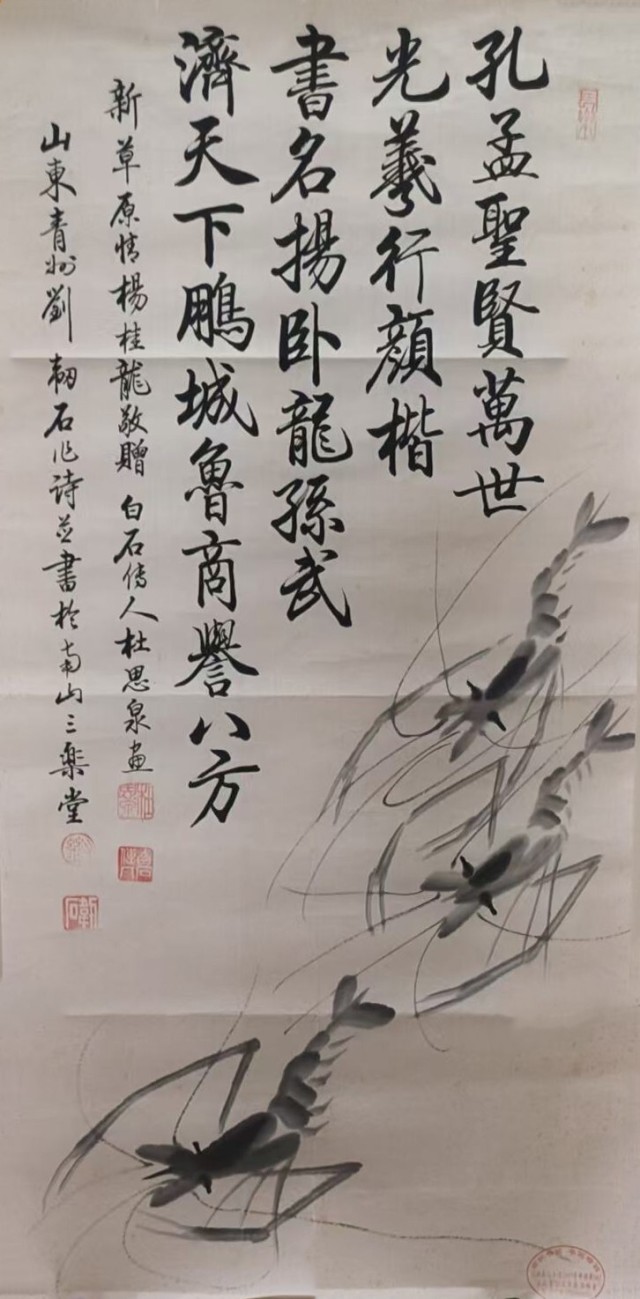 孔孟聖賢萬世
光羲行顔楷
書名揚卧龍孫武
濟天下鵬城魯商譽八方
新草原情楊桂龍敬贈 白石傳人杜思泉畫
山東青州劉韌石作詩並書於南山三樂堂